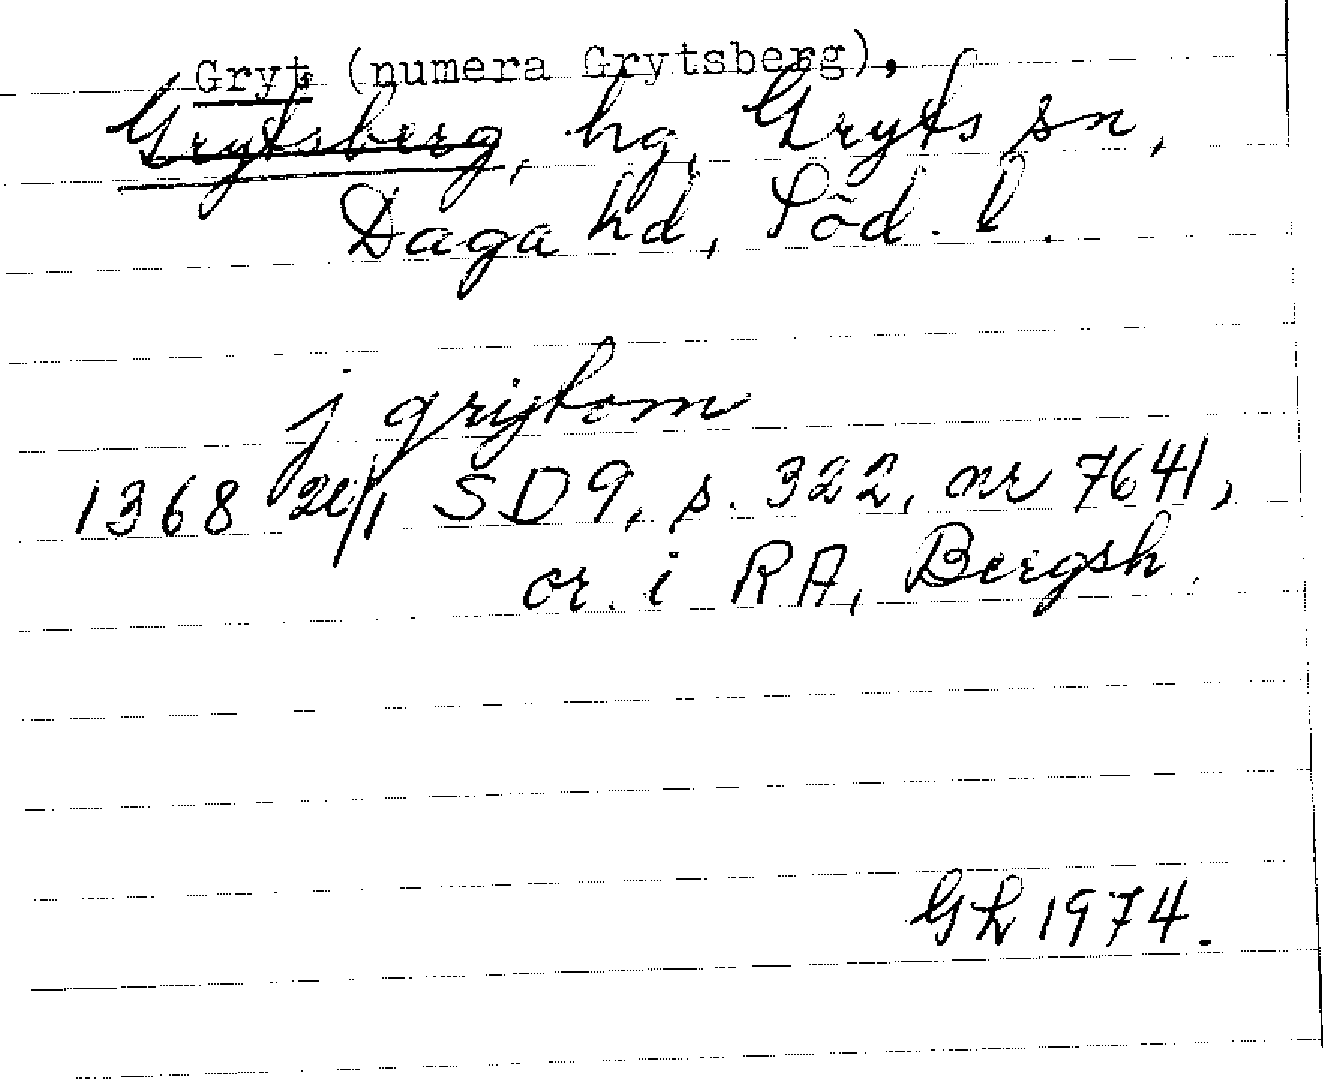 Gryt (numera Grytsberg),
Grytsberg, hg, Gryts sn,
Daga hd, Söd. l.
j grijtom
1368 20/1 SD9, s. 322, nr 7641,
or. i RA, Bergsh.
GL 1974.